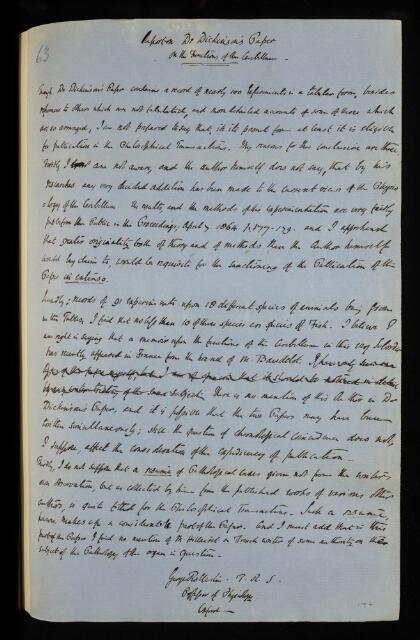 63
Report on Dr Dickinson's Paper
on the Functions of the Cerebellum.
Though Dr Dickinson's Paper contains a record of nearly 100 experiments in a tabular form, besides
references to others which are not tabulated, and more detailed accounts of some of those which
are so arranged, I am not prepared to say that, in its present form at least, it is eligible
for publication in the Philosophical Transactions. My reasons for this conclusion are these.
Firstly, I am not aware, and the author himself does not say, that by his
researches any very decided addition has been made to the current views of the Physio-
-logy of the Cerebellum. The results, and the methods of his experimentation are very fairly
put before the Public in the Proceedings, April 7. 1864. p. 177-179. and I apprehend
that greater originality both of theory and of methods than the Author himself
would lay claim to, would be requisite for the sanctioning of the Publication of the
Paper in extenso.
Secondly, records of 91 experiments upon 18 different species of animals being given
in the Tables, I find that no less than 10 of these species are species of Fish. I believe I
am right in saying that a memoir upon the functions of the Cerebellum in this very
has recently appeared in France from the hand of M. Baudelot.
of the same subject. There is no mention of this Author in Dr
Dickinson's Paper, and it is possible that the two Papers may have been
written simultaneously; still the question of chronological coincidence does not,
I suppose, affect the consideration of the expediency of publication.
Thirdly, I do not suppose that a resumé of Pathological cases given, not from the author's
own observation, but as collected by him from the published works of various other
authors, is quite fitted for the Philosophical Transactions. Such a resumé,
however, makes up a considerable part of the Paper. And I must add that in this
part of the Paper I find no mention of M. Hillairet a French writer of some authority on the
subject of the Pathology of the organ in question.
George Rolleston. F. R. S.
Professor of Physiology
Oxford